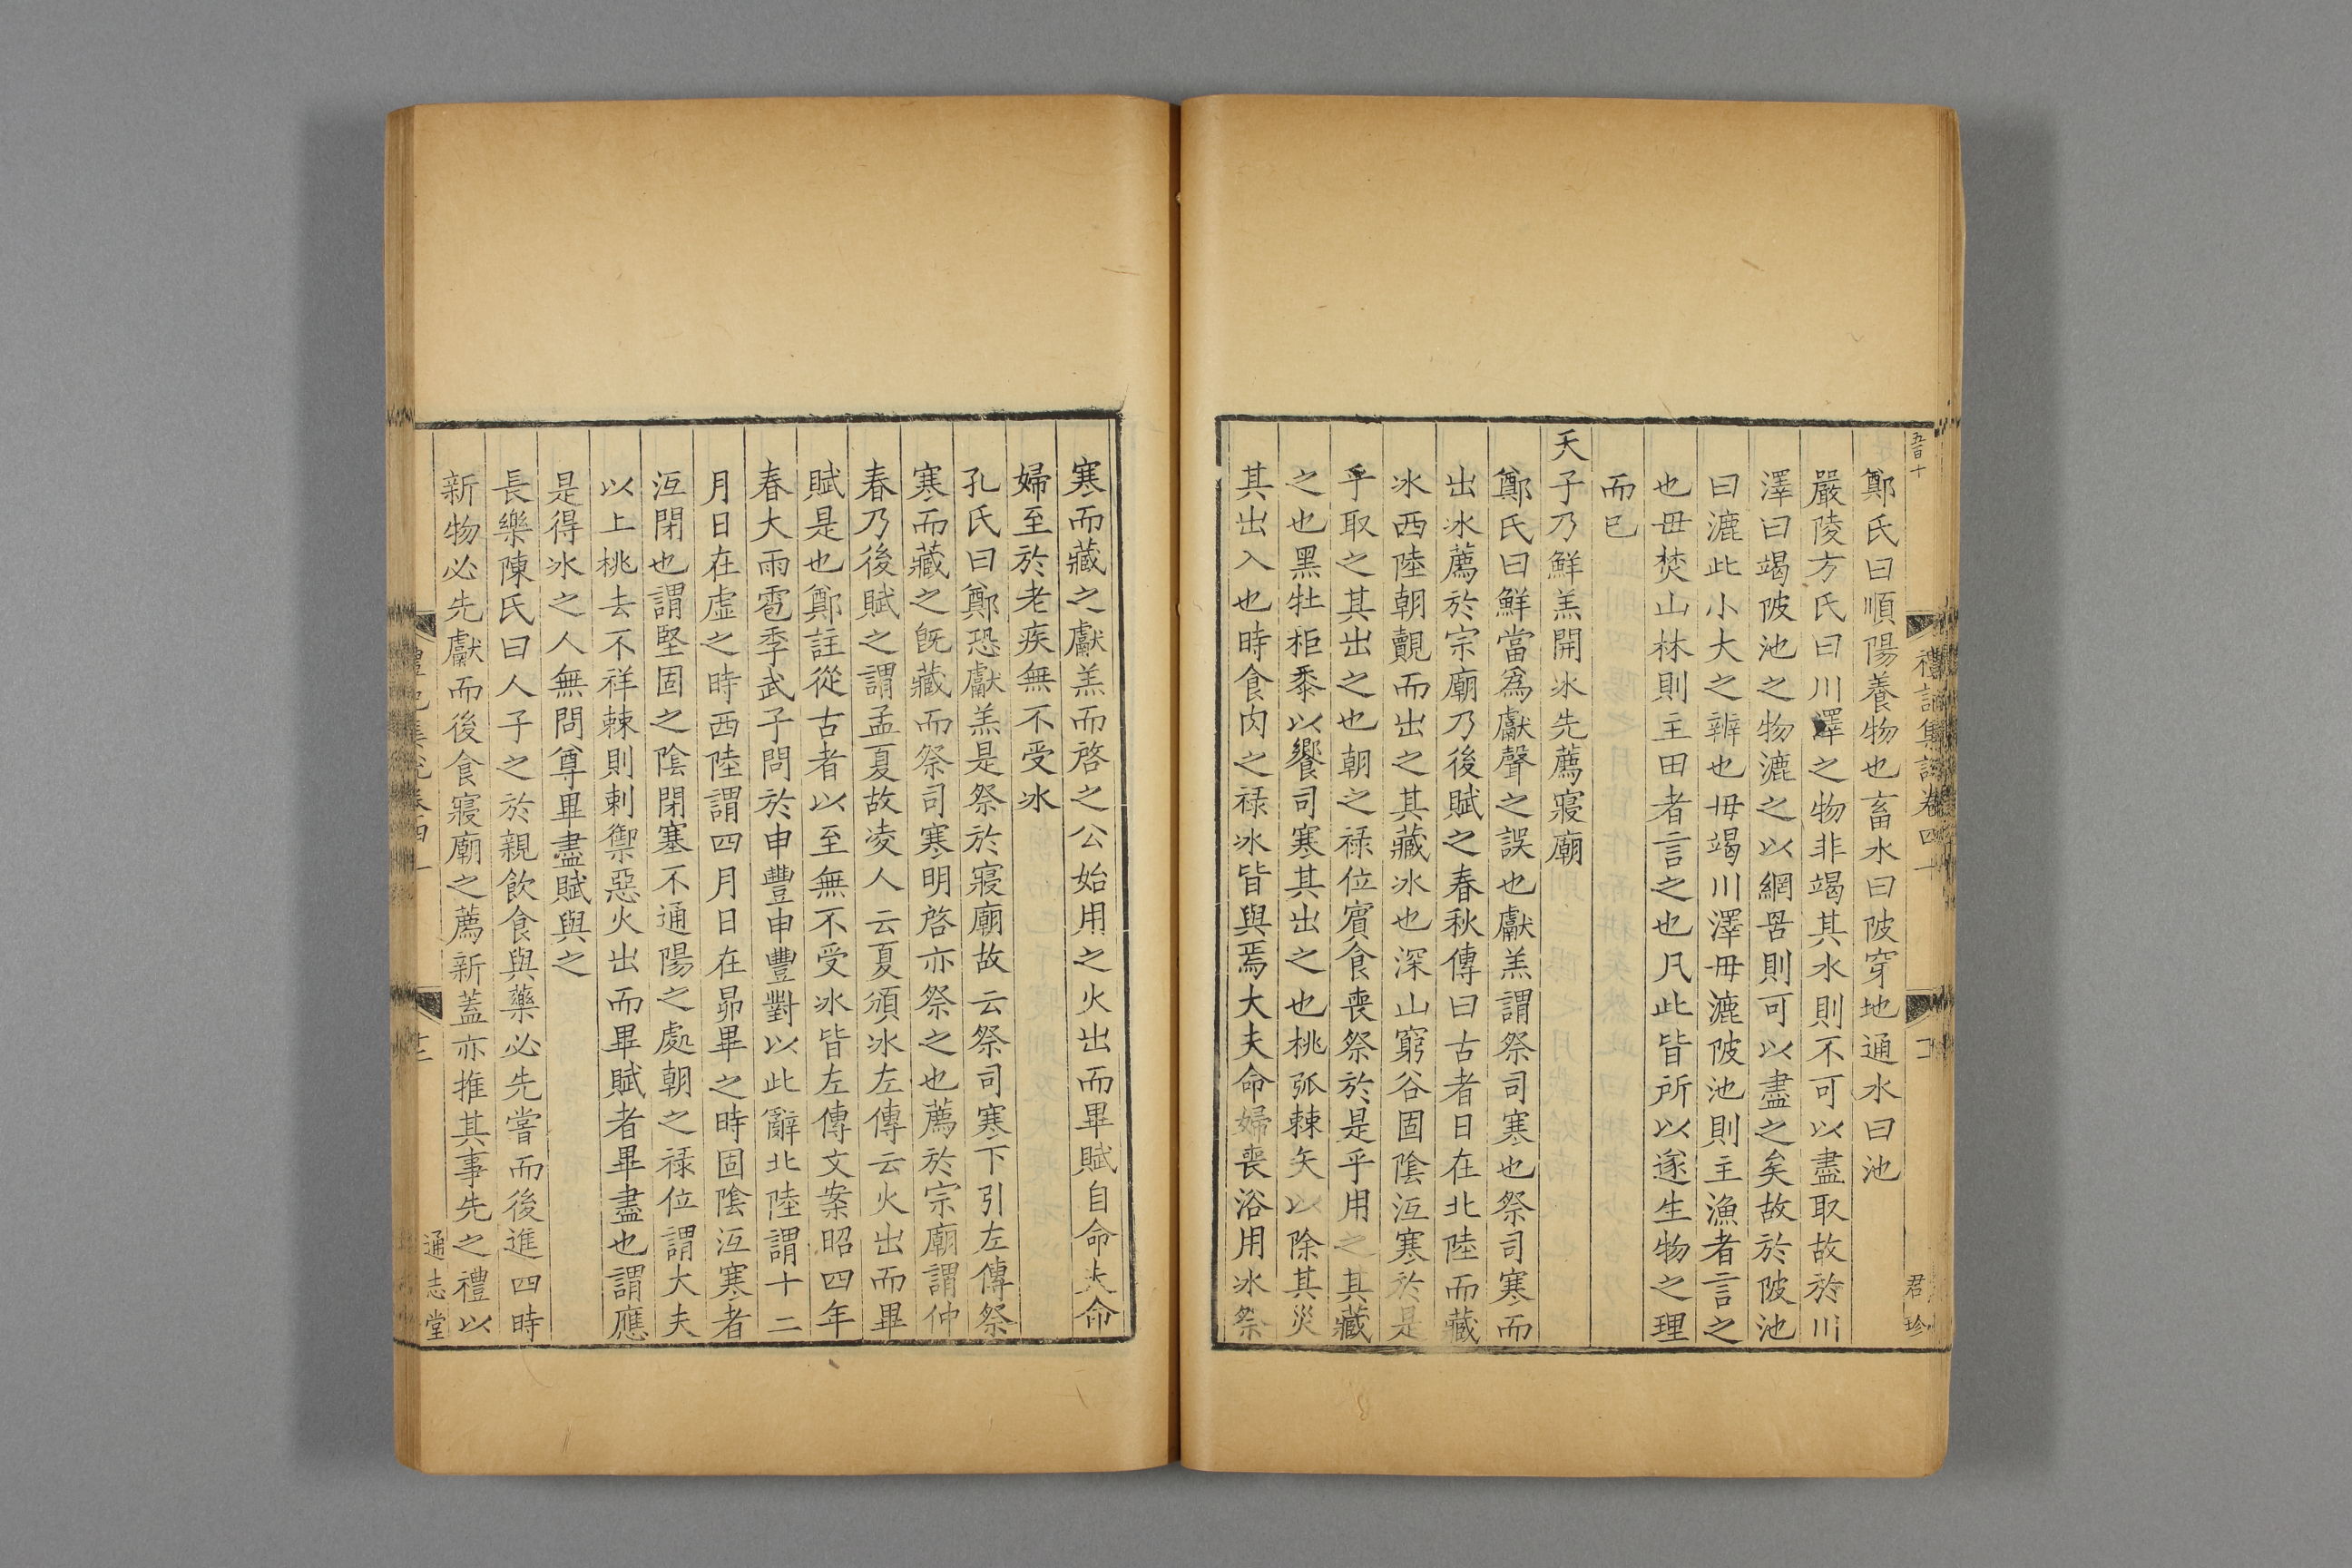 五百十
禮記集說卷四十
君珍
鄭氏曰順陽養物也畜水曰陂穿地通水曰池
嚴陵方氏曰川澤之物非竭其水則不可以盡取故於川
澤曰竭陂池之物漉之以網罟則可以盡之矣故於陂池
曰漉此小大之辨也毋竭川澤毋漉陂池則主漁者言之
也毋焚山林則主田者言之也凡此皆所以遂生物之理
而已
天子乃鮮羔開冰先薦寢廟
鄭氏曰鮮當爲獻聲之誤也獻羔謂祭司寒也祭司寒而
出冰薦於宗廟乃後賦之春秋傳曰古者日在北陸而藏
冰西陸朝覿而出之其藏冰也深山窮谷固陰沍寒於是
乎取之其出之也朝之祿位賓食喪祭於是乎用之其藏
之也黑牡秬黍以饗司寒其出之也桃弧棘矢以除其災
其出入也時食肉之祿冰皆與焉大夫命婦喪浴用冰祭
寒而藏之獻羔而啓之公始用之火出而畢賦自命夫命
婦至於老疾無不受冰
孔氏曰鄭恐獻羔是祭於寢廟故云祭司寒下引左傳祭
寒而藏之旣藏而祭司寒明啓亦祭之也薦於宗廟謂仲
春乃後賦之謂孟夏故凌人云夏頒冰左傳云火出而畢
賦是也鄭註從古者以至無不受冰皆左傳文案昭四年
春大雨雹季武子問於申豐申豐對以此辭北陸謂十二
月日在虛之時西陸謂四月日在昴畢之時固陰沍寒者
沍閉也謂堅固之陰閉塞不通陽之處朝之祿位謂大夫
以上桃去不祥棘則刺禦惡火出而畢賦者畢盡也謂應
是得冰之人無問尊畢盡賦與之
長樂陳氏曰人子之於親飲食與藥必先嘗而後進四時
新物必先獻而後食寢廟之薦新蓋亦推其事先之禮以
禮記集說卷四十
十二
通志堂